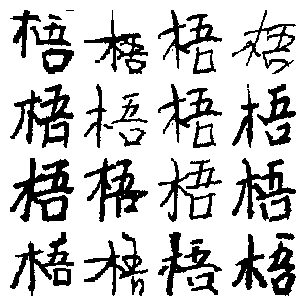 梧梧梧梧
梧梧梧梧
梧梧梧梧
梧梧梧梧